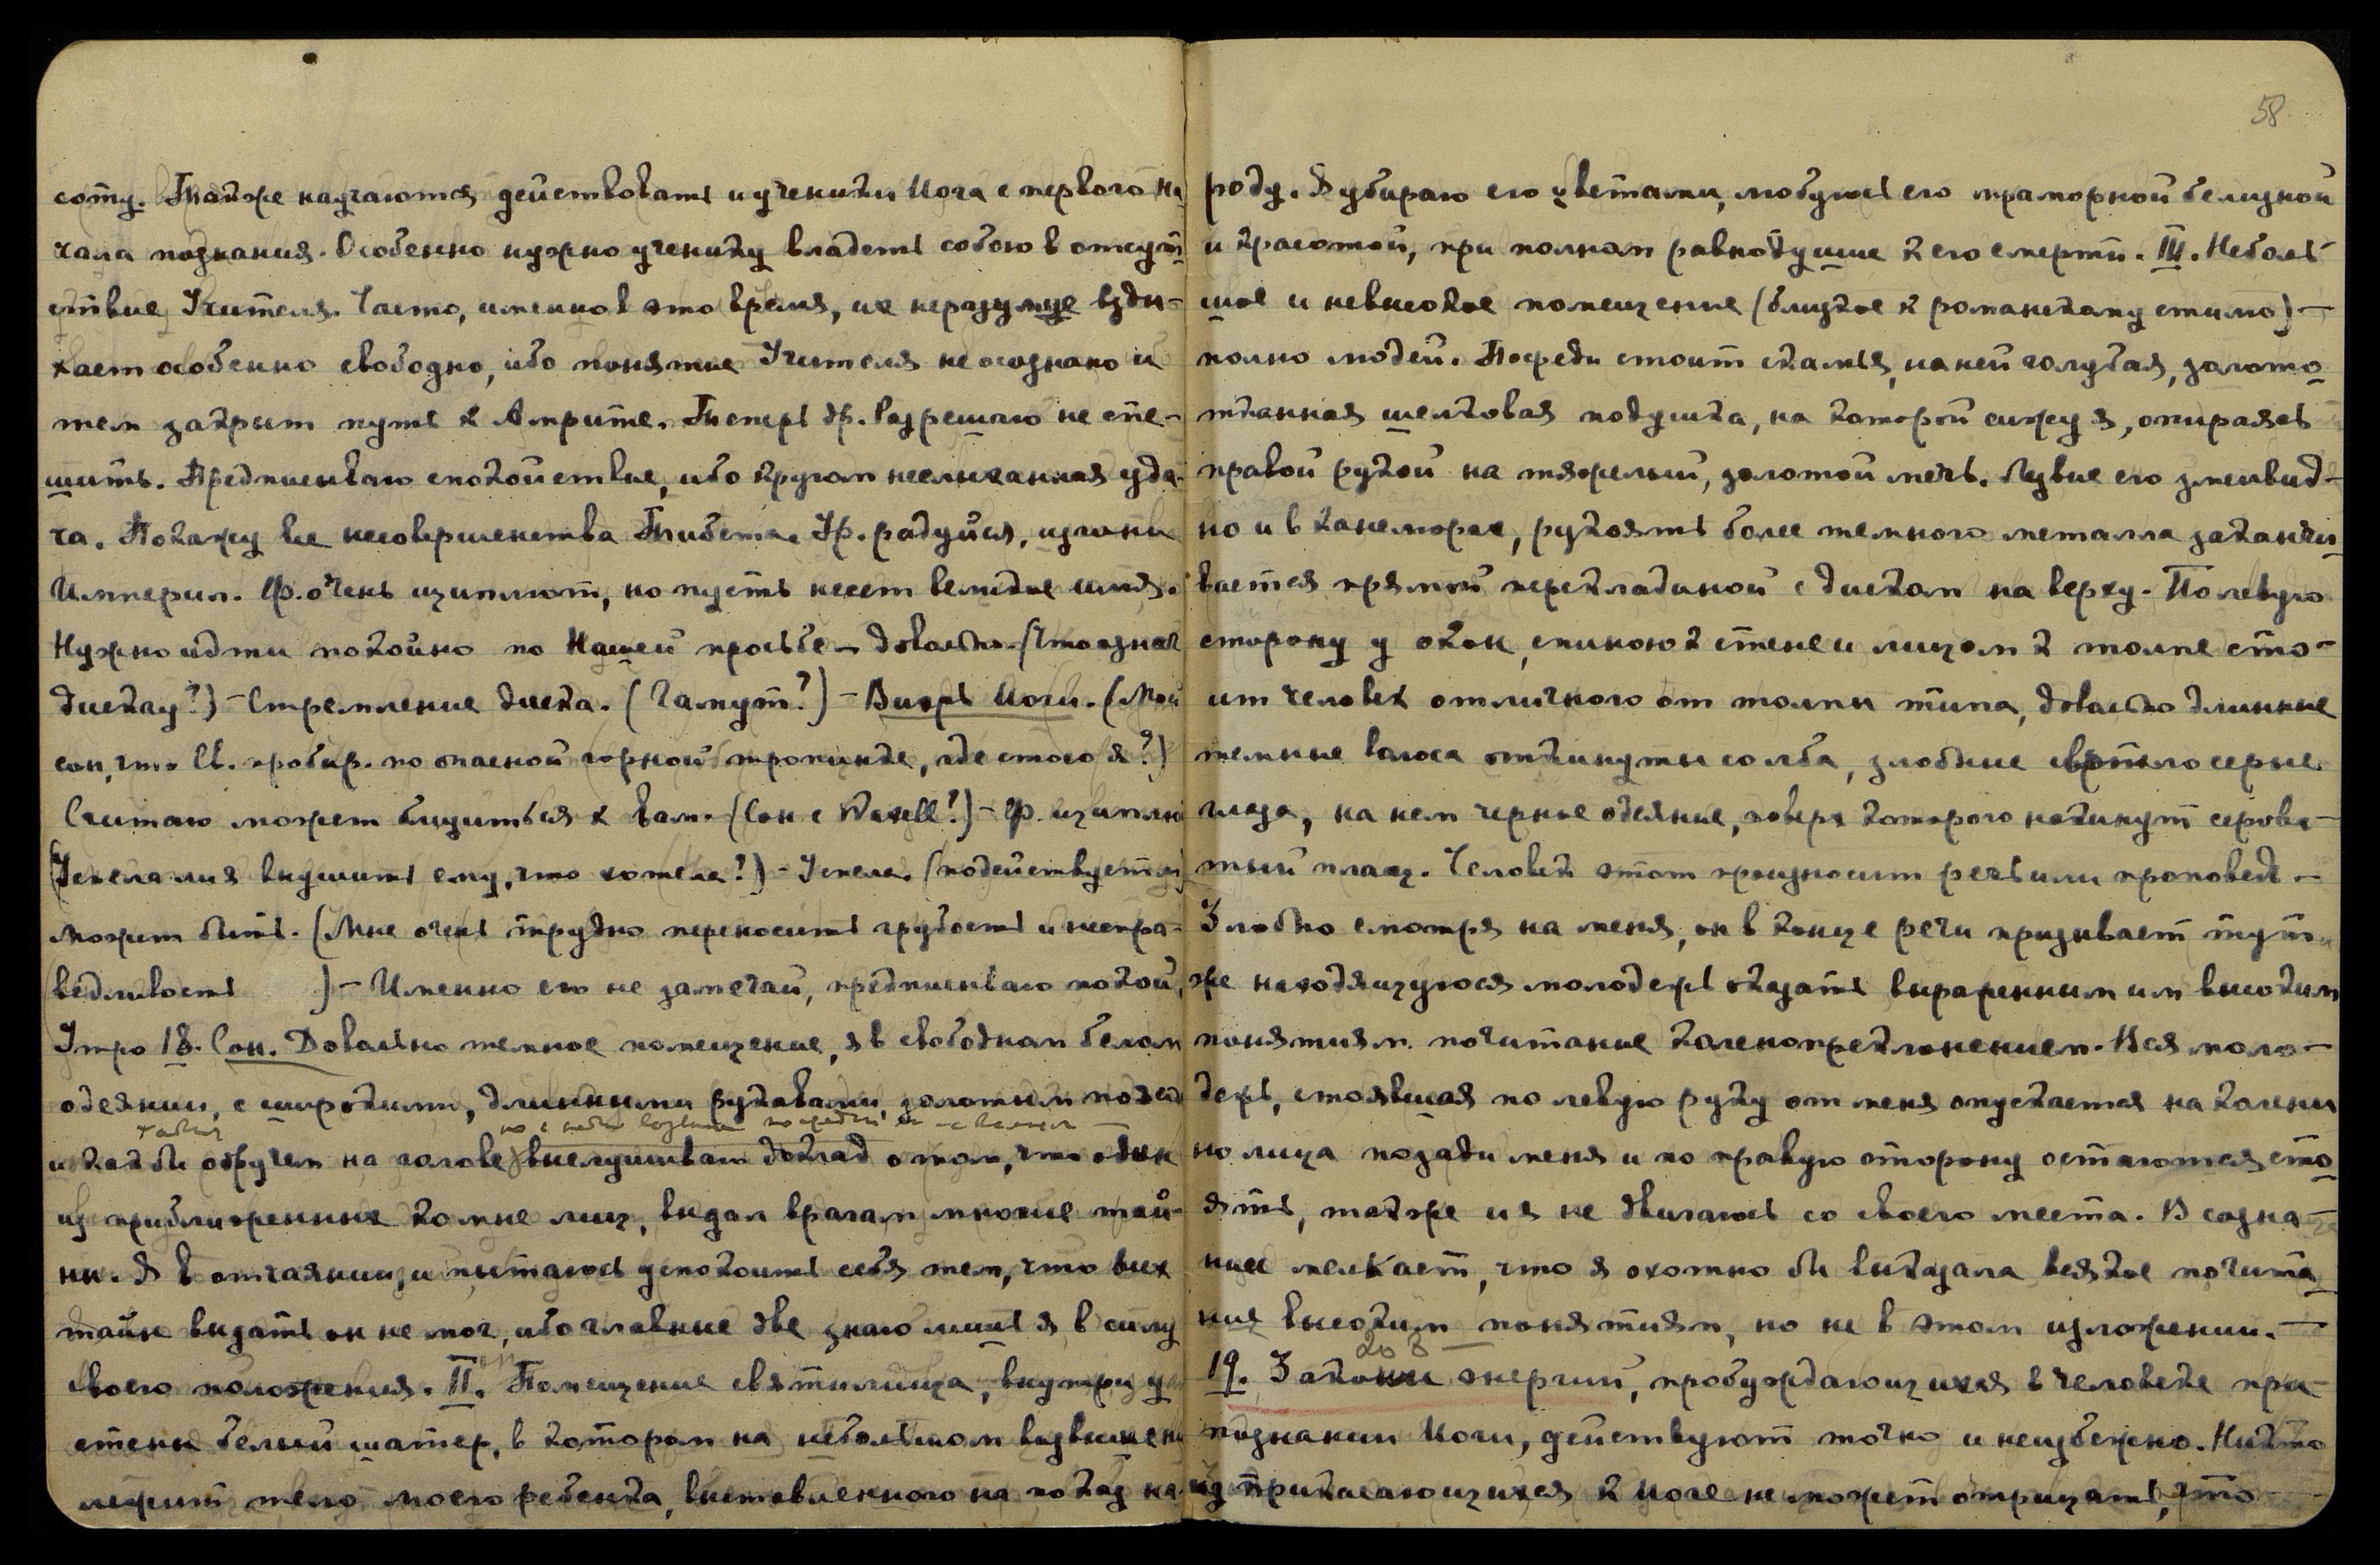 соту. Также научаются действовать и ученики Йога с первого на
чала познания. Особенно нужно ученику владеть собою в отсут
ствие Учителя. Часто, именно в это время, их неразумие взды-
хает особенно свободно, ибо понятие Учителя не осознано и
тем закрыт путь к Амрите. Теперь др. Разрешаю не спе-
шить. Предписываю спокойствие, ибо кругом неслыханная уда-
ча. Покажу все несовершенства Тибета. Ур. радуйся,
Империл. Ф. очень щиплют, но пусть несет великое имя.
Нужно идти покойно по Нашей просьбе – довольно. (Что
диску?) – Стремление диска. (Гамут?) – Вихрь Йоги. (Мой
сон, что Св. пробир. по опасной горной тропинке, где стою я?)
Считаю может близиться к вам. (Сон с ?) – Ф. щиплю
(Успела ли я внушить ему, что хотела?) – Успела. (подействует
может быть. (Мне очень трудно переносить грубость и неспра-
ведливость ) – Именно его не замечай, предписываю покой.
Утро 18. Сон. Довольно темное помещение, я в свободном белом
одеянии, с широкими, длинными рукавами, золотым
и как бы обручем на голове выслушиваю доклад о том, что один
из приближенных ко мне лиц, выдал врагам многие тай-
ны. Я в отчаянии, и пытаюсь успокоить себя тем, что всех
тайн выдать он не мог, ибо главные две знаю лишь я в силу
своего положения. II. Помещение святилища, внутри у
стены белый шатер, в котором на небольшом возвышени
лежит тело моего ребенка, выставленного на показ на-
58
роду. Я убираю его цветами, любуюсь его мраморной белизной
и красотой, при полном равнодушие к его смерти. III. Неболь-
шое и невысокое помещение (близкое к романскому стилю) –
полно людей. Посреди стоит скамья, на ней голубая, золото
тканная шелковая подушка, на которой сижу я, опираясь
правой рукой на тяжелый, золотой мечъ. Лезвие его змеевид-
но и в канеморах, рукоять более темного металла заканчи
вается прямой перекладиной с диском на верху. По левую
сторону у окон, спиною к стене и лицом к толпе сто-
ит человек отличного от толпы типа, довольно длинные
темные волоса откинуты со лба, злобные светло серые
глаза, на нем черное одеяние, поверх которого накинут серова-
тый плащ. Человек этот произносит речь или проповедь –
Злобно смотря на меня, он в конце речи призывает тут
же находящуюся молодежь оказать выраженным им высоким
понятиям почитание коленопреклонением. Вся моло-
дежь, стоявшая по левую руку от меня опускается на колени
но лица позади меня и по правую сторону остаются сто
ять, также и я не двигаюсь со своего места. В созна-
нии мелькает, что я охотно бы выказала всякое почита
ние высоким понятиям, но не в этом изложении. –
19. Законы энергий, пробуждающихся в человеке при
познании Йоги, действуют точно и неизбежно. Никто
из прикасающихся к Йоге не может отрицать, что –